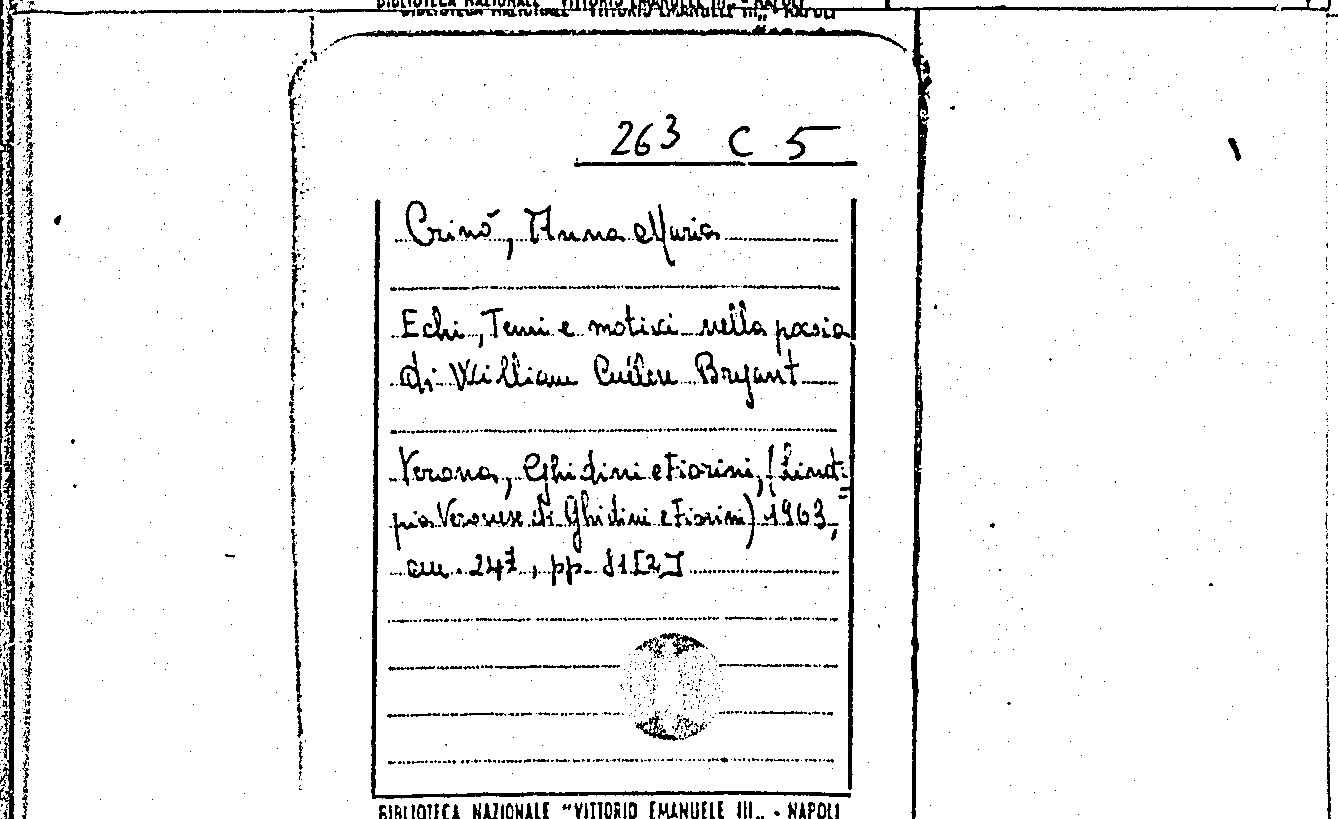 BIBLIOTECA NAZIONALE "VITTORIO EMANUELE III„ - NAPOLI
BIBLIOTECA NAZIONALE "VITTORIO EMANUELE III„ - NAPOLI
263 C 5
Crinò, Anna Maria
Echi, Temi e motivi nella poesia
di William Cullen Bryant
Verona, Ghidini e Fiorini, (Linot=
pia Veronese di Ghidini e Fiorini) 1963,
cm. 247, pp. 81 [2]
BIBLIOTECA NAZIONALE "VITTORIO EMANUELE III„ - NAPOLI